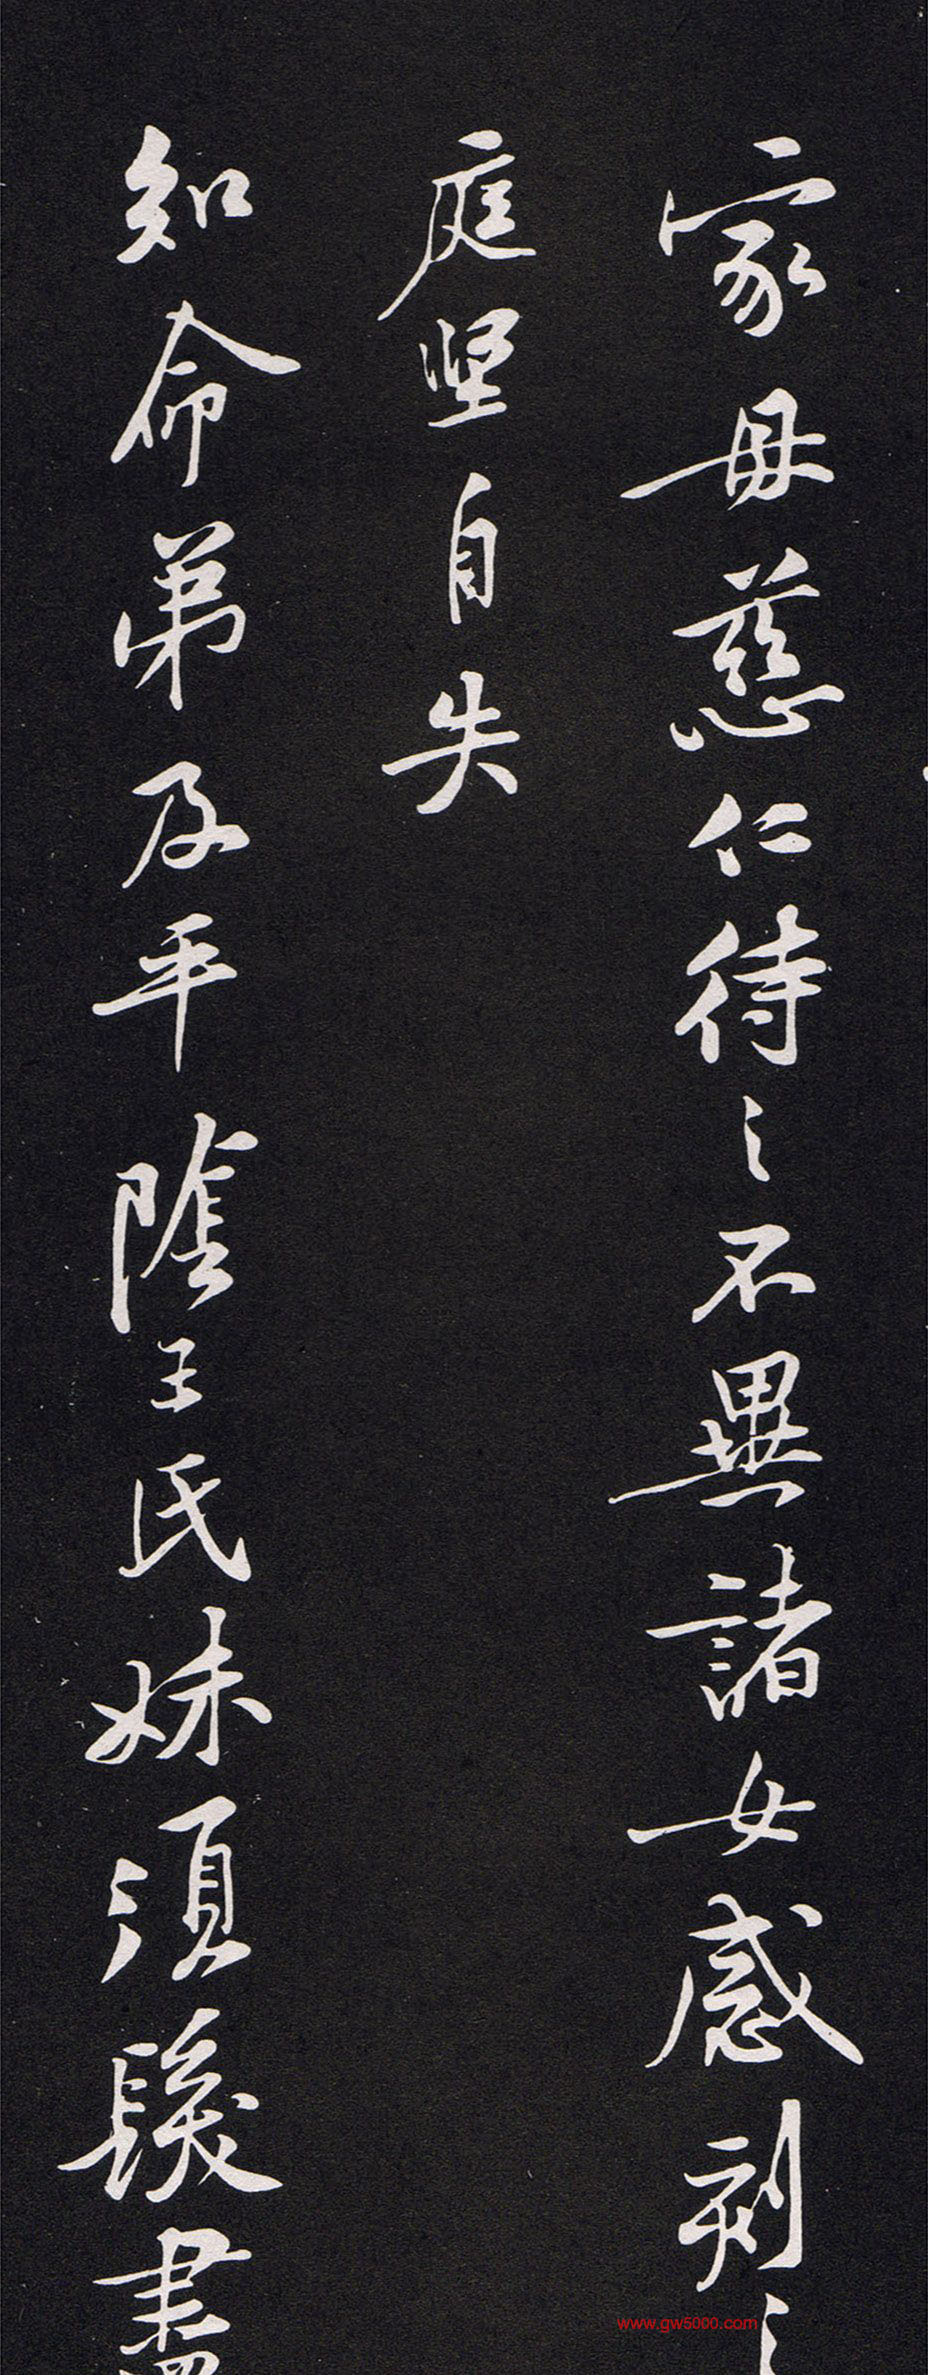 家母慈仁待之不異諸女感刻之
庭坚自失
知命弟及平陰王氏妹須髮盡
www.gw5000.com